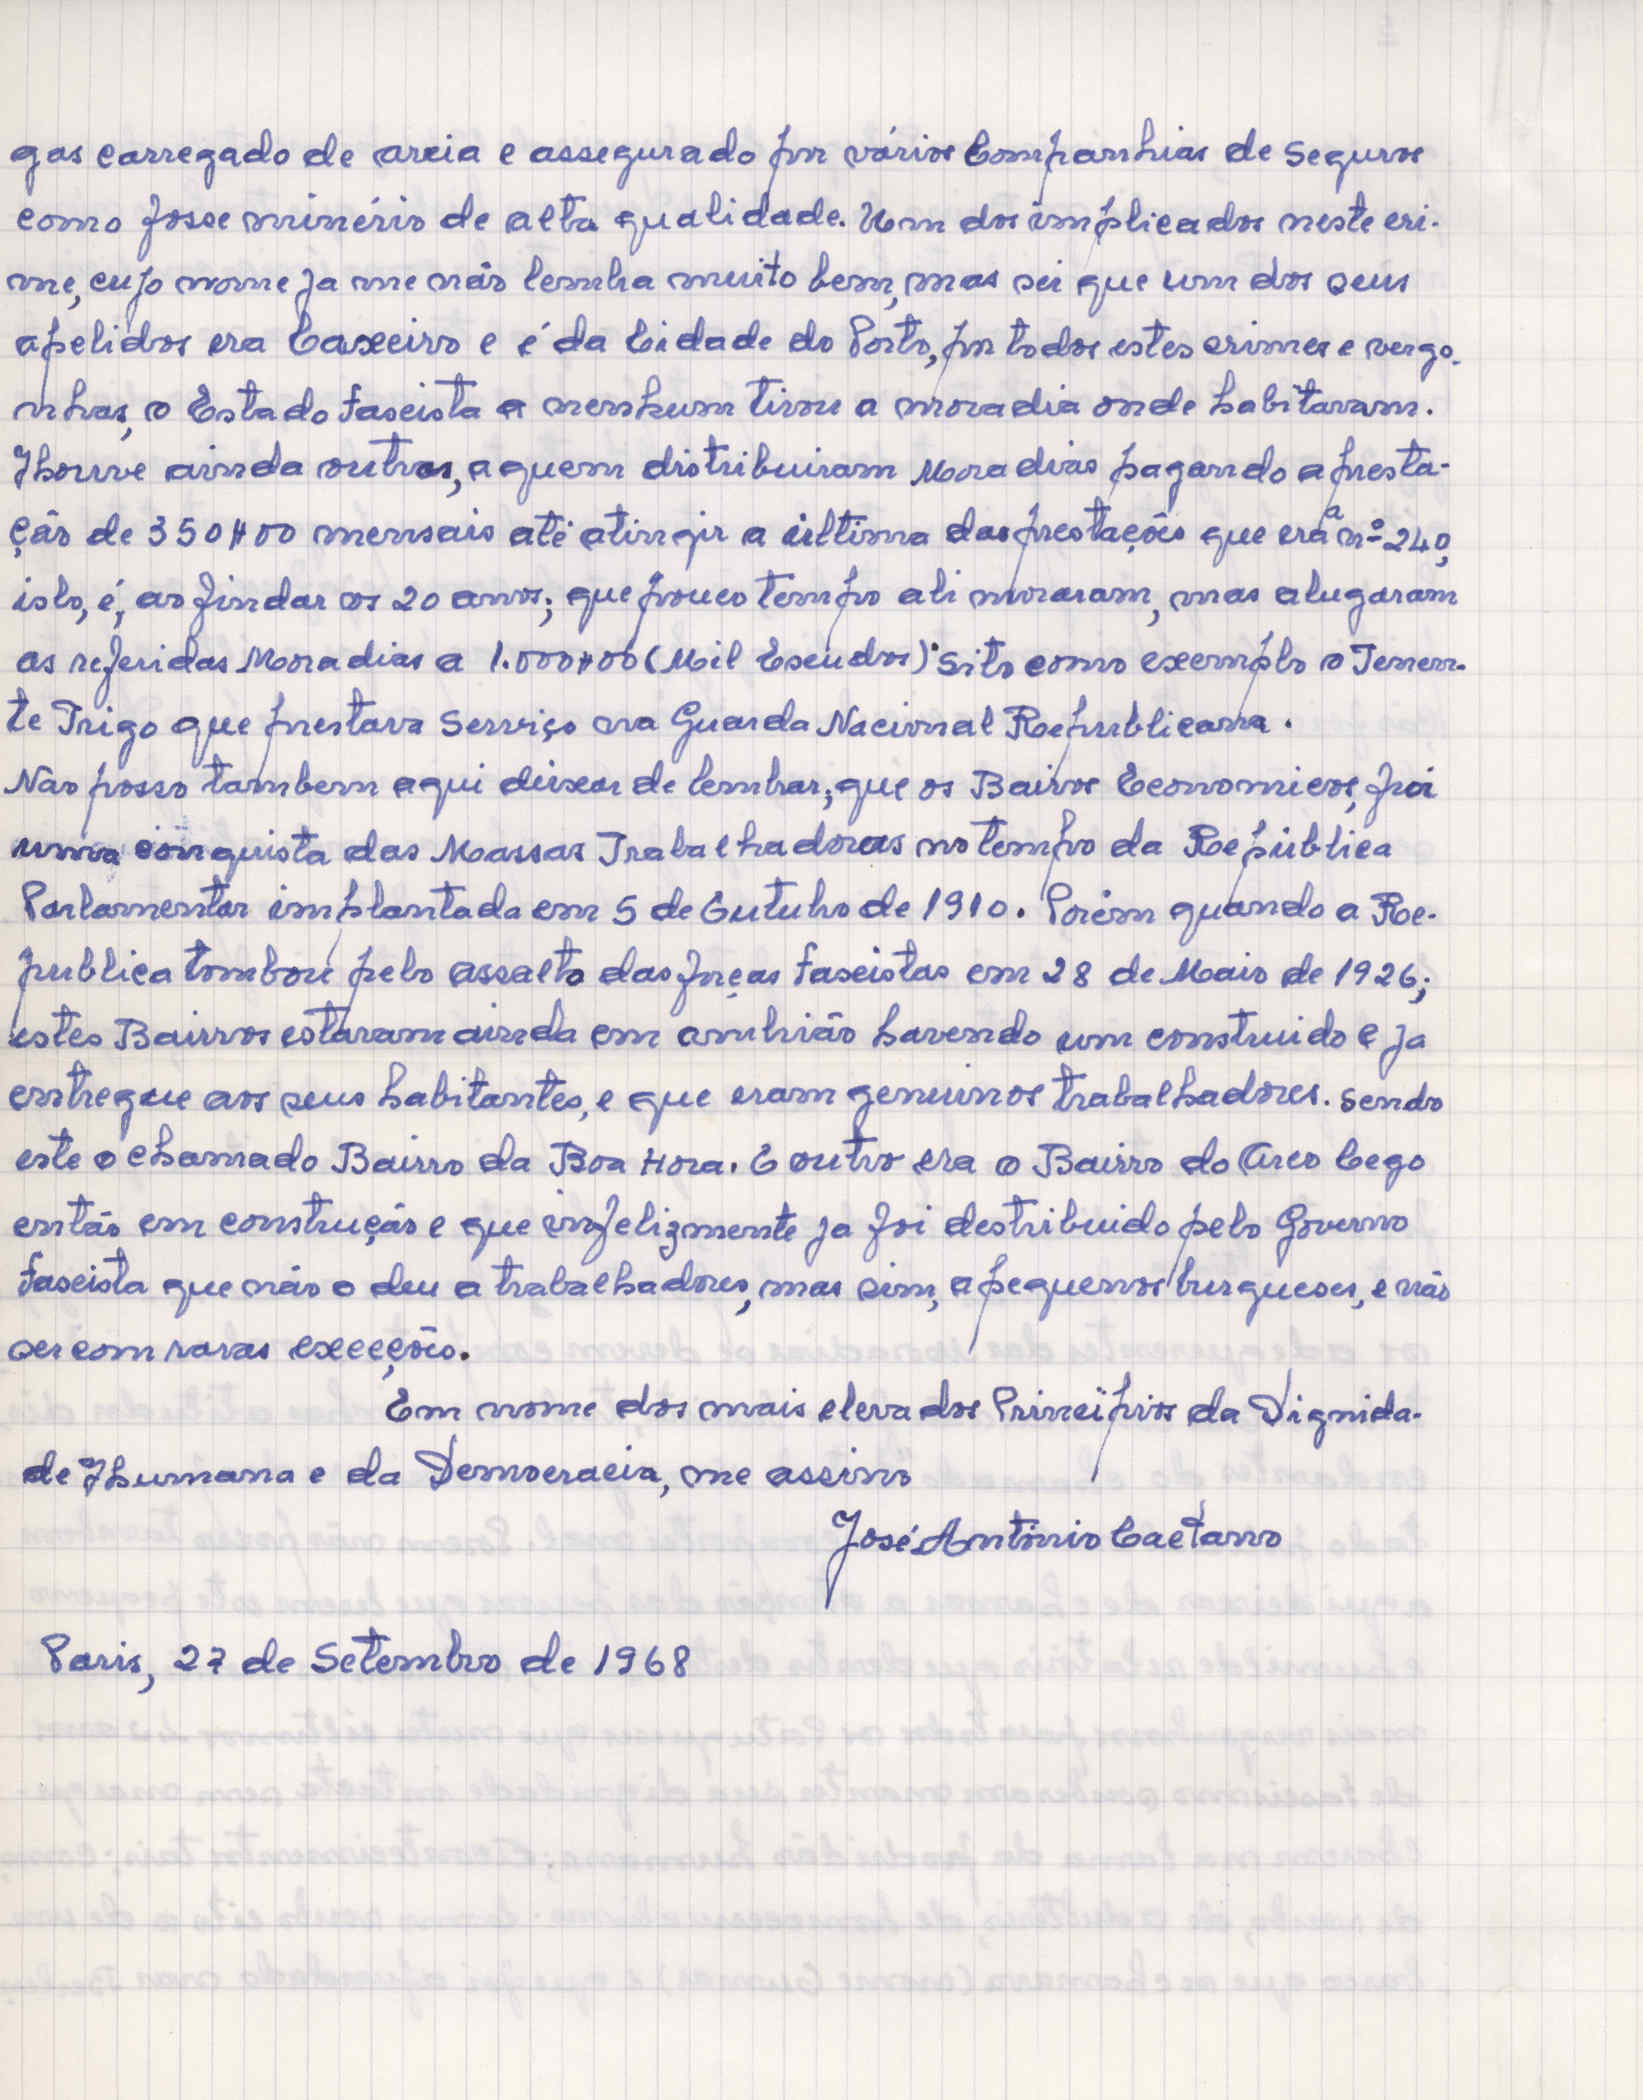 gas carregado de areia e assegurado por várias Companhias de Seguros
como fosse minério de alta qualidade. Um dos implicados neste cri-
me, cujo nome ja me não lembra muito bem, mas sei que um dos seus
apelidos era Caxeiro e é da Cidade do Porto, por todos estes crimes e vergo-
nhas, o Estado fascista a nenhum tirou a moradia onde habitavam.
Houve ainda outros, a quem distribuiram Moradias pagando a presta-
ção de 350$00 mensais até atingir a última das prestações que era a nº 240,
isto, é, ao findar os 20 anos; que pouco tempo ali moraram, mas alugaram
as referidas Moradias a 1.000$00 (Mil Escudos). Sito como exemplo o Tenen-
te Trigo que prestava Serviço na Guarda Nacional Republicana.
Não posso tambem aqui deixar de lembrar, que os Bairos Economicos, foi
uma conquista das Massas Trabalhadoras no tempo da República
Parlamentar implantada em 5 de Outubro de 1910. Porém quando a Re-
publica tombou pelo assalto das forças fascistas em 28 de Maio de 1926;
estes Bairros estavam ainda em ambrião havendo um construido e ja
entregue aos seus habitantes, e que eram genuinos trabalhadores. Sendo
este o chamado Bairro da Boa Hora. O outro era o Bairro do Arco Cego
então em construção e que infelizmente ja foi destribuido pelo Governo
fascista que não o deu a trabalhadores, mas sim, a pequenos burgueses, e não
ser com raras exceções.
Em nome dos mais elevados Princípios da Dignida-
de Humana e da Democracia, me assino
José António Caetano
Paris, 27 de Setembro de 1968